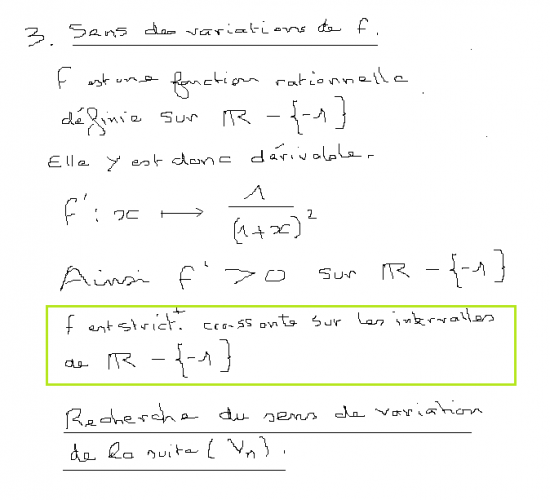 3. Sens des variations de f.
f est une fonction rationnelle
définie sur ℝ - {-1}
Elle y est donc dérivable.
f' : x ⟼ 1/(1+x)²
Ainsi f' > 0 sur ℝ - {-1}
f est strict.t croissante sur les intervalles
de ℝ - {-1}
Recherche du sens de variation
de la suite (Vn).